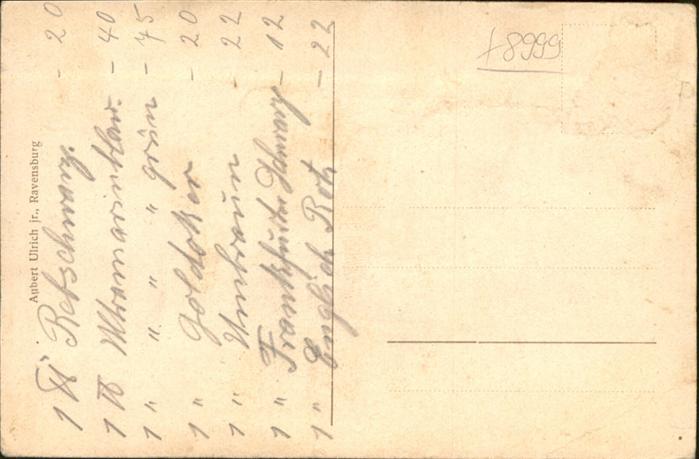 Aubert Ulrich jr., Ravensburg
1 ℔ Rebschwarz. - 20
1 ℔ Ultramarinblau. - 40
1 " " " grün - 75
1 " Goldoker - 20
1 " Umbraun 22
1 " Frankfurter Schwarz - 12
1 " Englisch Rot - 22
+8999